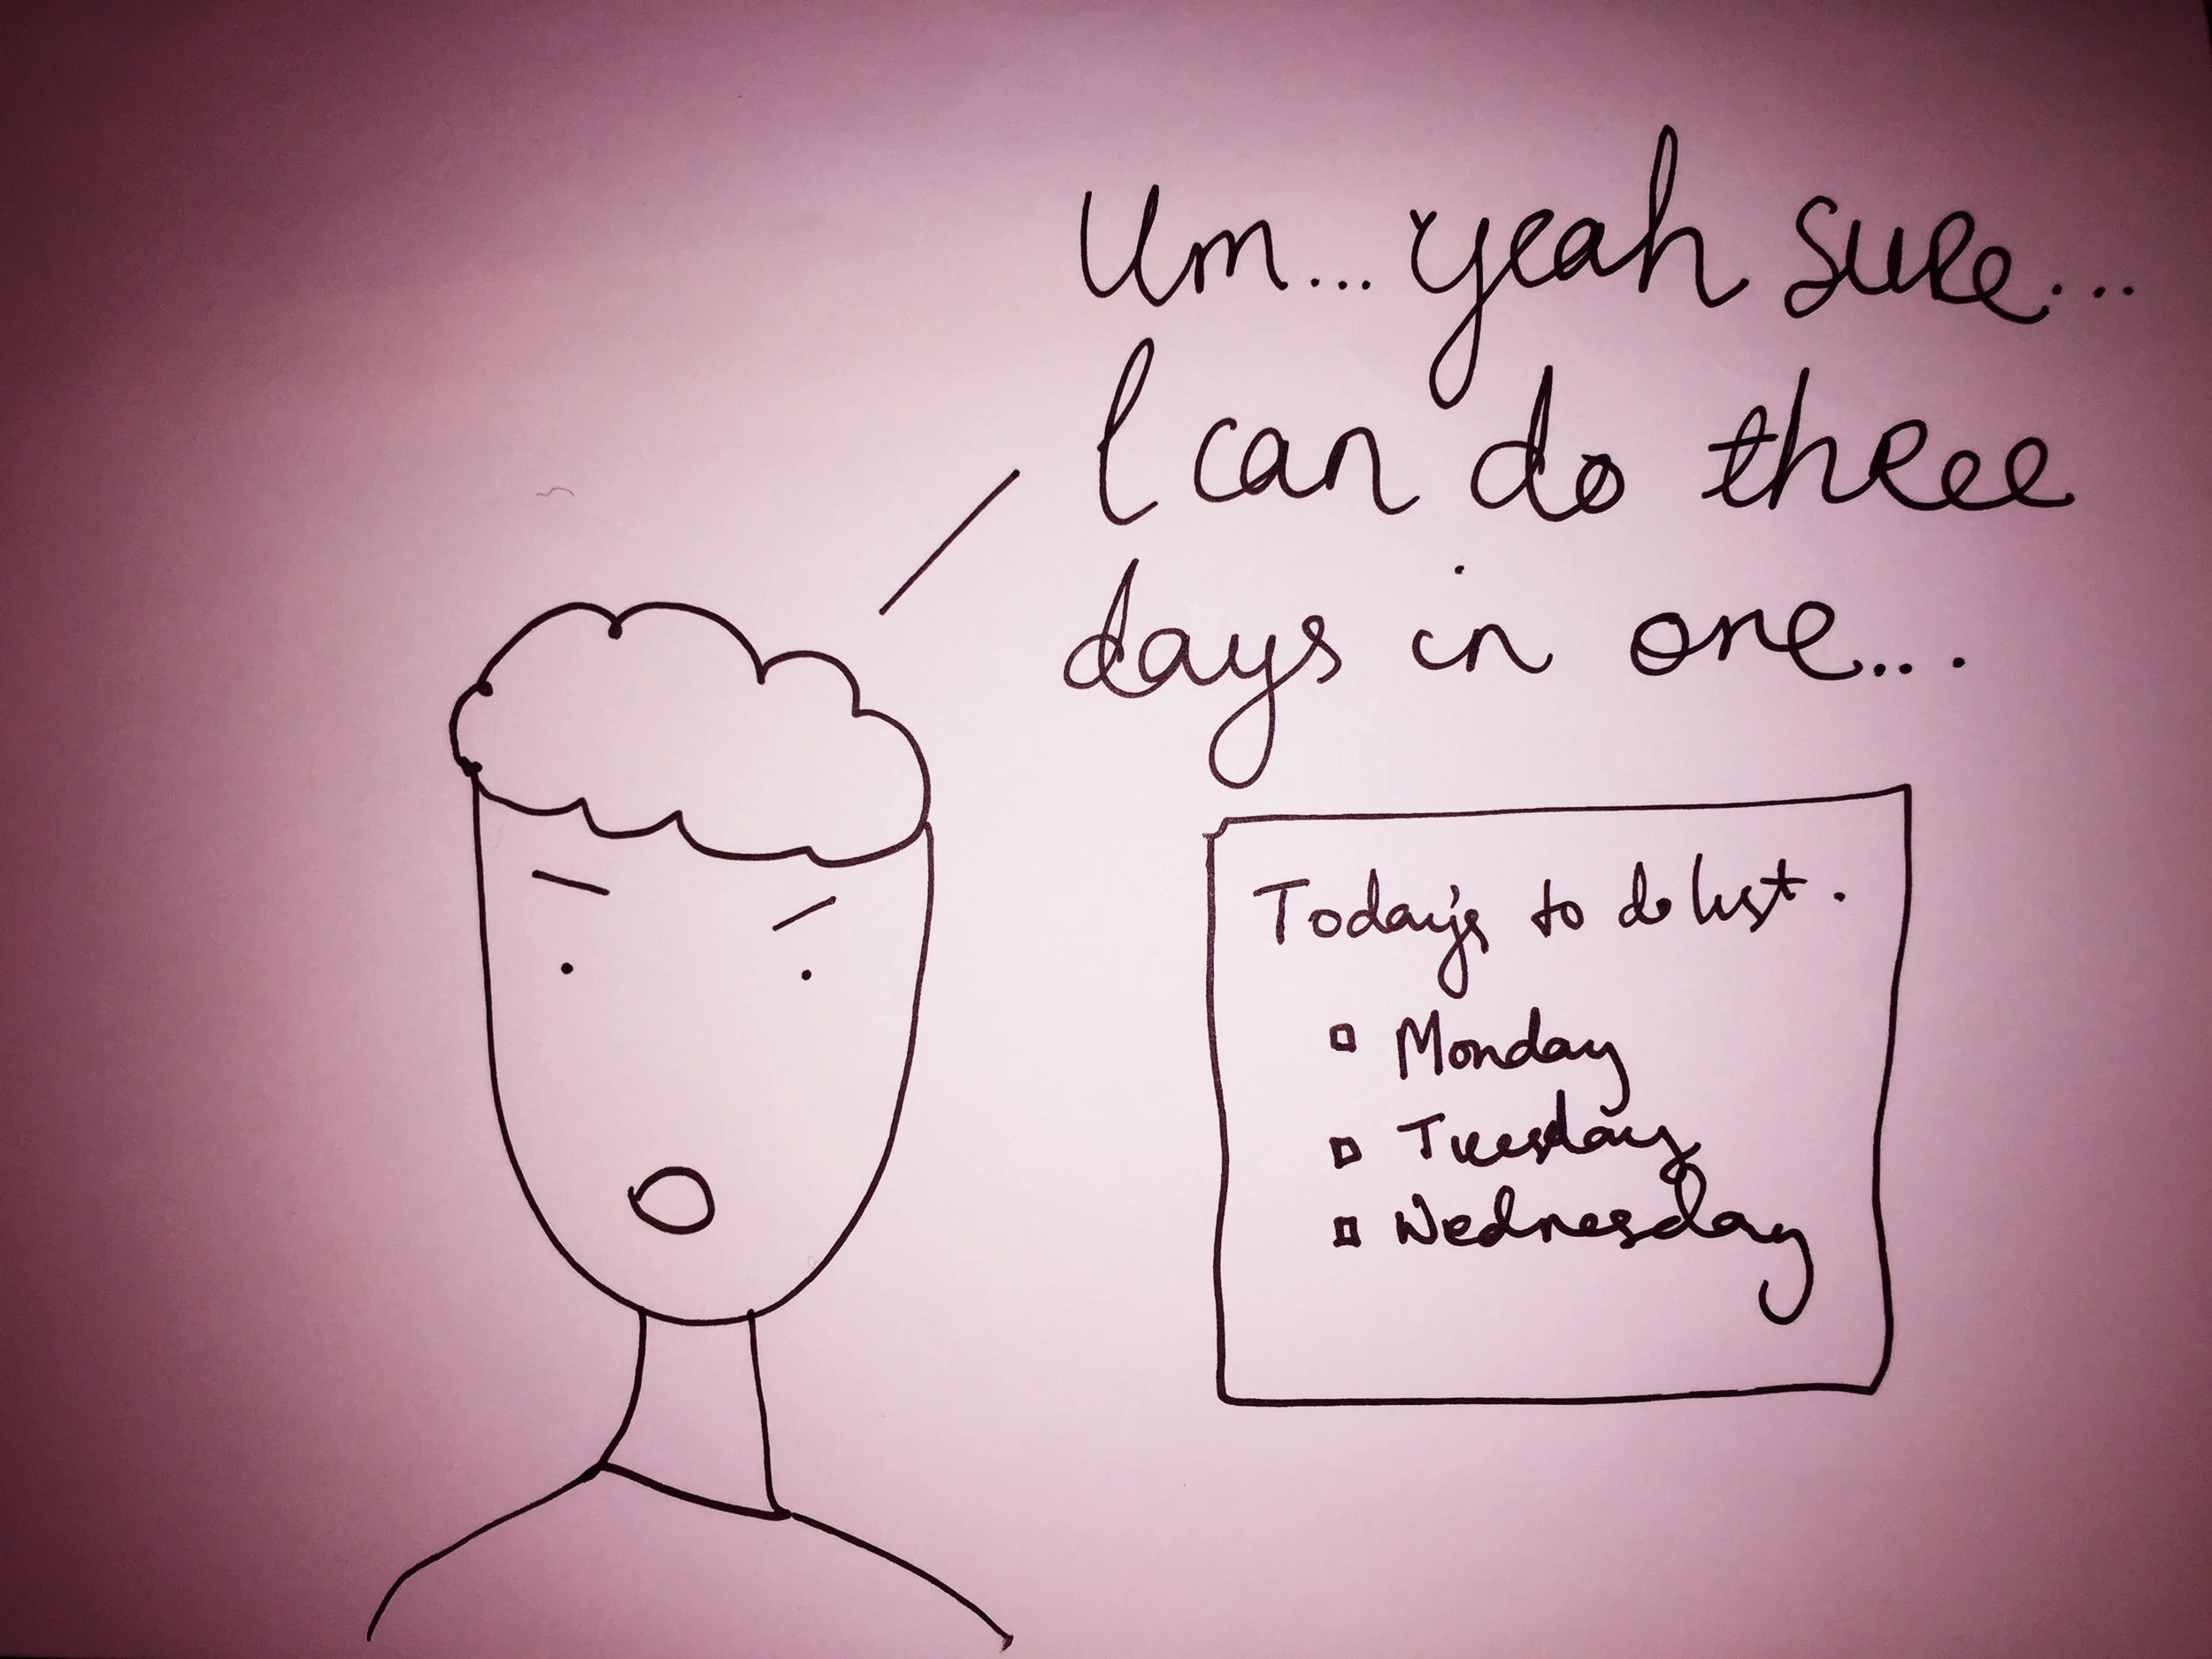 Um... yeah sure...
I can do three
days in one...
Today's to do list.
Monday
Tuesday
Wednesday